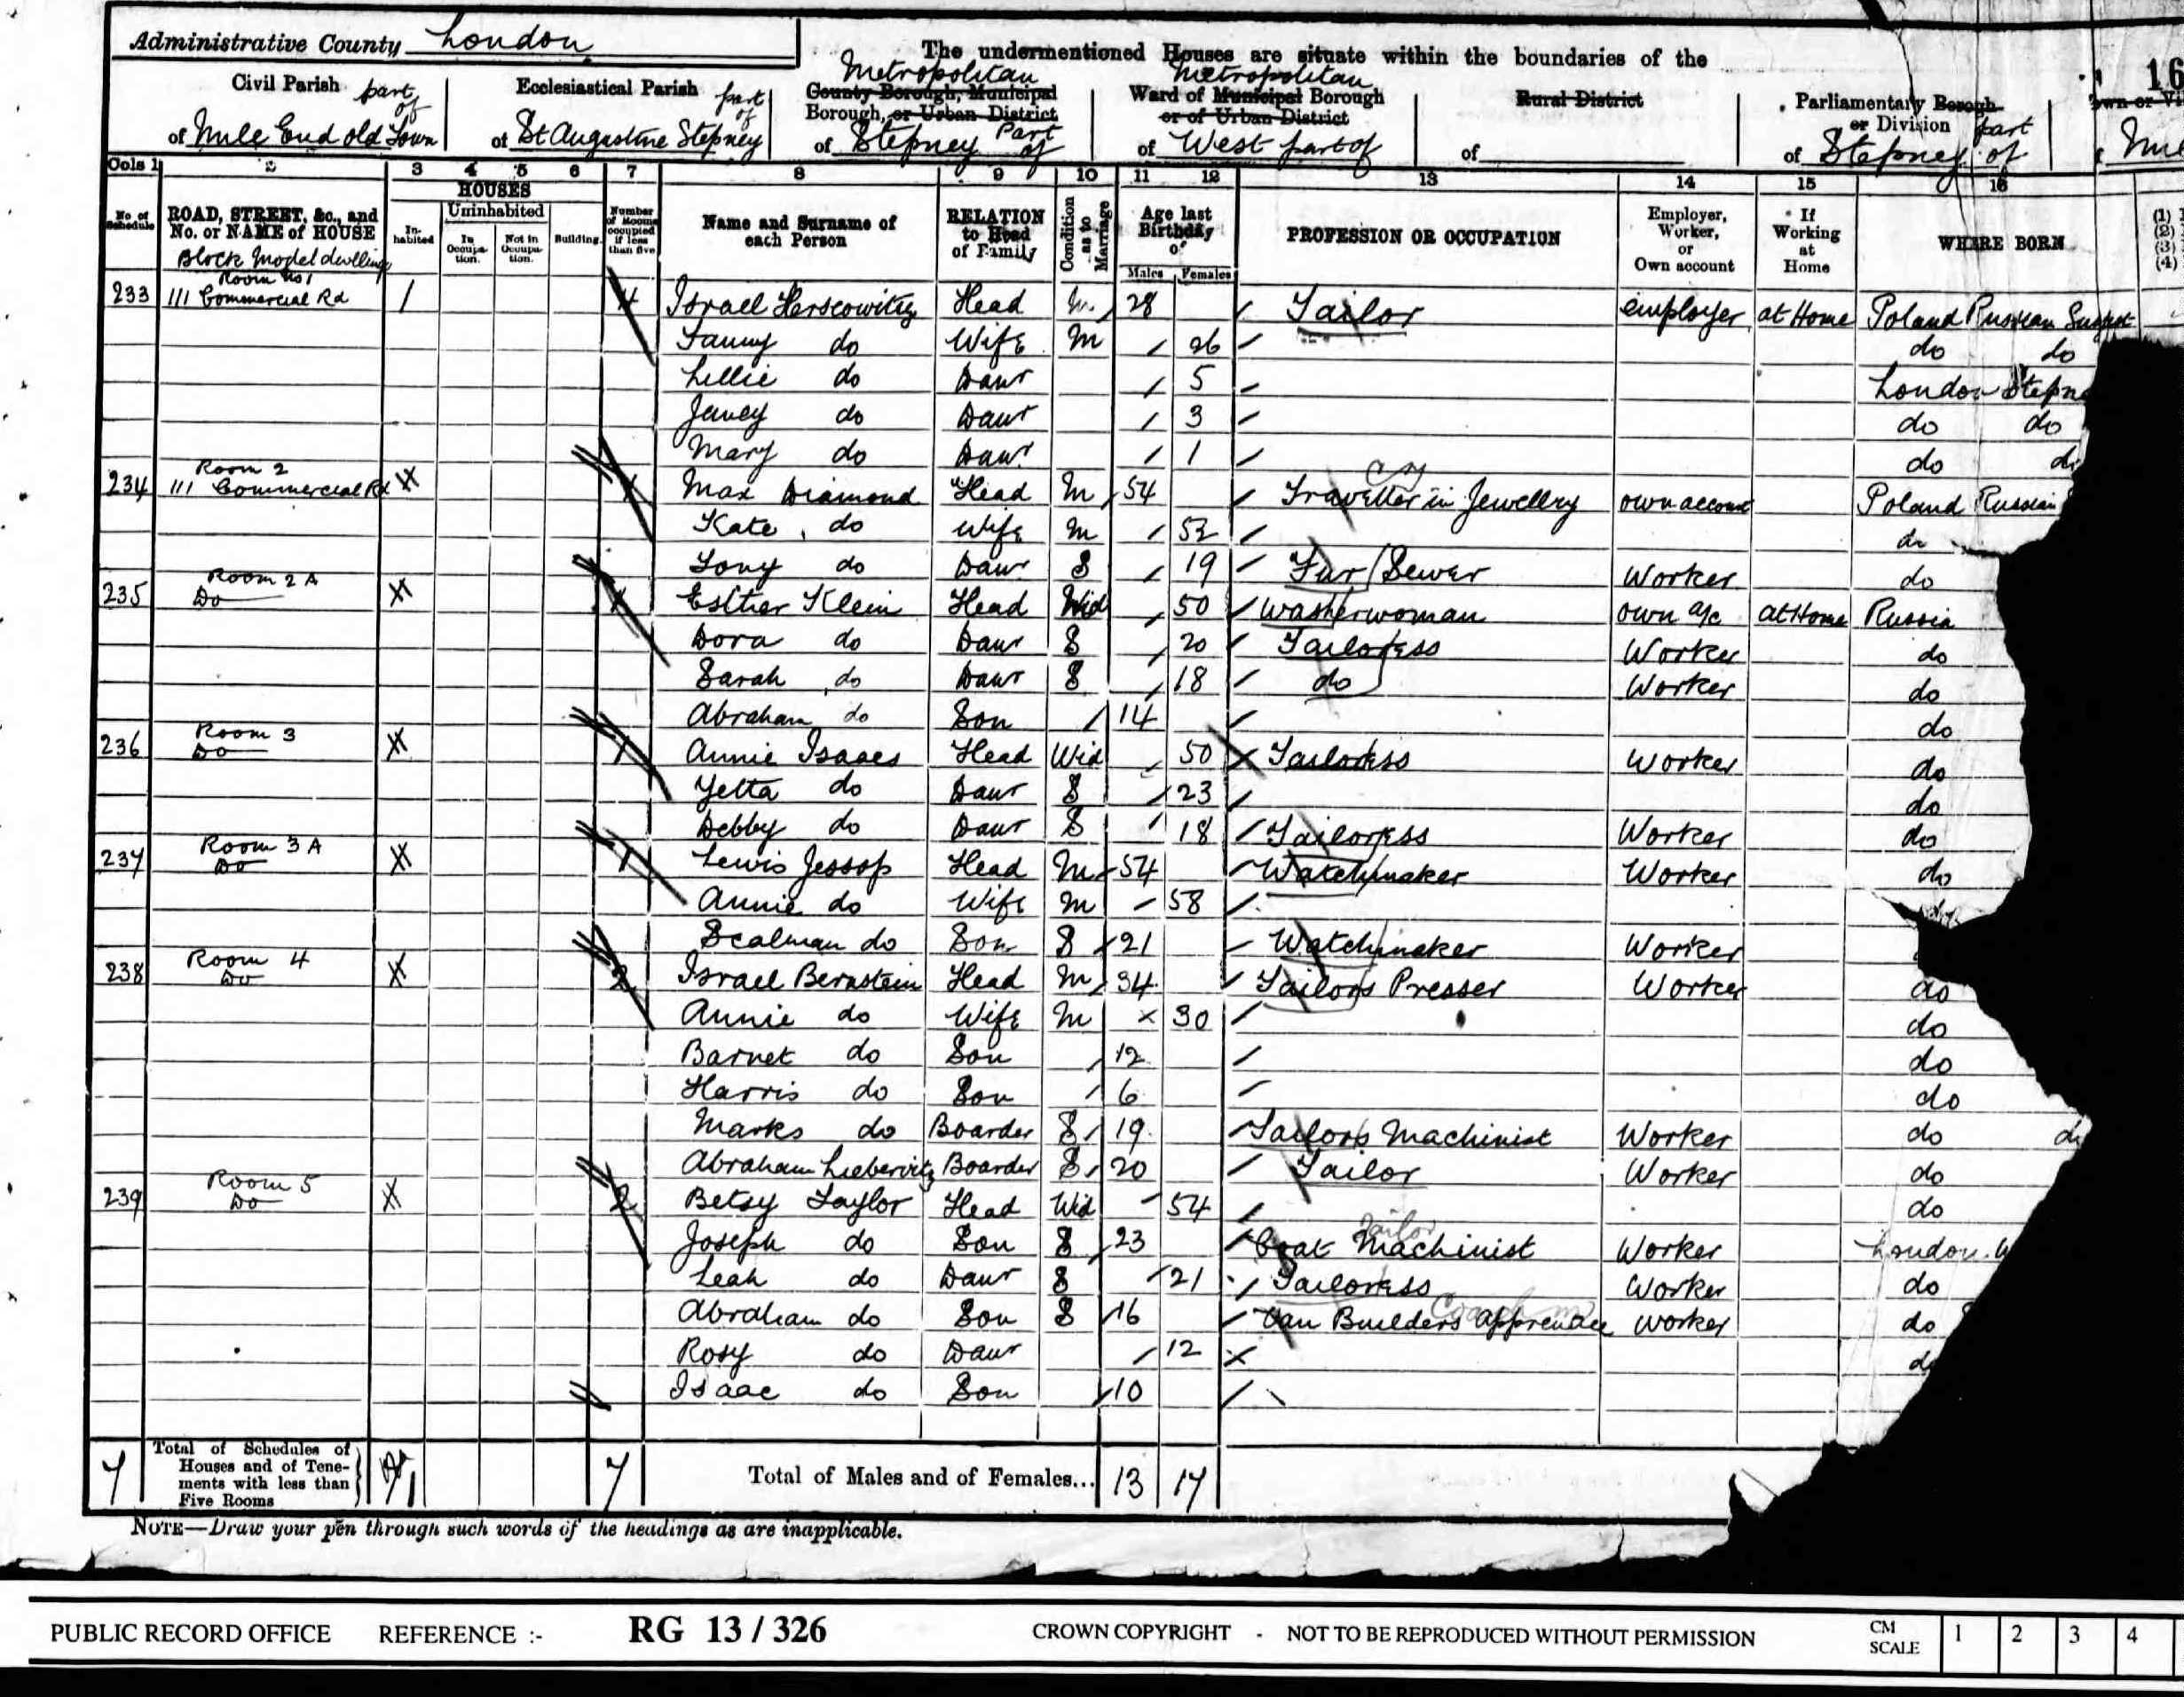 Administrative County London
The undermentioned Houses are situate within the boundaries of the
16
Civil Parish part of
of Mile End Old Town
Ecclesiastical Parish part of
of St Augustine Stepney
Metropolitan
County Borough, Municipal
Borough, or Urban District
of Stepney Part of
Metropolitan
Ward of Municipal Borough
or of Urban District
of West part of
Rural District
of
Parliamentary Borough
or Division
of Stepney part of
Cols 1 2 3 4 5 6 7 8 9 10 11 12 13 14 15 16
No. of Schedule
ROAD, STREET, &c., and No. or NAME of HOUSE
HOUSES
Inhabited
Uninhabited
In Occupation.
Not in Occupation.
Building.
Number of Rooms occupied if less than five
Name and Surname of each Person
RELATION to Head of Family
Condition as to Marriage
Age last Birthday of
Males Females
PROFESSION OR OCCUPATION
Employer, Worker, or Own account
If Working at Home
WHERE BORN
(1)
(2)
(3)
(4)
Block Model dwellings
Room No 1
233 111 Commercial Rd 1 4 Israel Herscowitz Head M 28 Tailor employer at Home Poland Russian Subject
Fanny do Wife M 26 do do
Lillie do Daur 5 London Stepn
Janey do Daur 3 do do
Mary do Daur 1 do do
Room 2
234 111 Commercial Rd X 1 Max Diamond Head M 54 Traveller in Jewellery own account Poland Russian
Kate do Wife M 52 do
Tony do Daur S 19 Fur Sewer Worker do
Room 2A
235 Do X 1 Esther Klein Head Wid 50 Washerwoman own a/c at Home Russia
Dora do Daur S 20 Tailoress Worker do
Sarah do Daur S 18 do Worker do
Abraham do Son 14 do
Room 3
236 Do X 1 Annie Isaacs Head Wid 50 Tailoress Worker do
Yetta do Daur S 23 do
Debby do Daur S 18 Tailoress Worker do
Room 3A
237 Do X 1 Lewis Jessop Head M 54 Watchmaker Worker do
Annie do Wife M 58 do
Scalman do Son S 21 Watchmaker Worker
Room 4
238 Do X 2 Israel Bernstein Head M 34 Tailors Presser Worker do
Annie do Wife M 30 do
Barnet do Son 12 do
Harris do Son 6 do
Marks do Boarder S 19 Tailors Machinist Worker do do
Abraham Liebervitz Boarder S 20 Tailor Worker do
Room 5
239 Do X 2 Betsy Taylor Head Wid 54 do
Joseph do Son S 23 Coat Machinist Tailor Worker London W
Leah do Daur S 21 Tailoress Worker do
Abraham do Son S 16 Van Builders apprentice Worker do
Rosy do Daur 12 do
Isaac do Son 10
7 Total of Schedules of Houses and of Tenements with less than Five Rooms 1 7 Total of Males and of Females... 13 17
NOTE—Draw your pen through such words of the headings as are inapplicable.
PUBLIC RECORD OFFICE REFERENCE :- RG 13 / 326 CROWN COPYRIGHT - NOT TO BE REPRODUCED WITHOUT PERMISSION CM SCALE 1 2 3 4